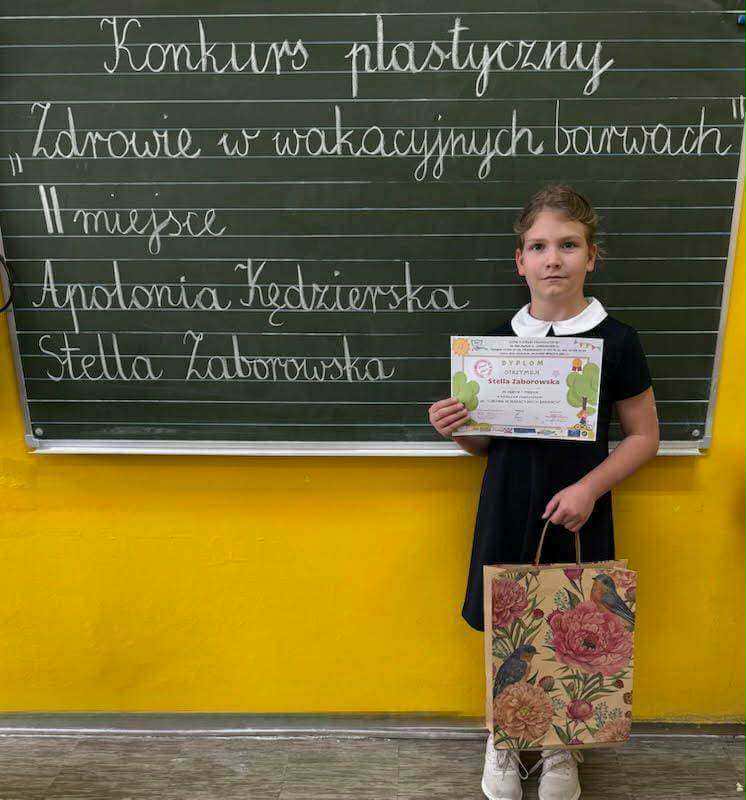 Konkurs plastyczny
„Zdrowie w wakacyjnych barwach"
II miejsce
Apolonia Kędzierska
Stella Zaborowska
DYPLOM
OTRZYMUJE
Stella Zaborowska